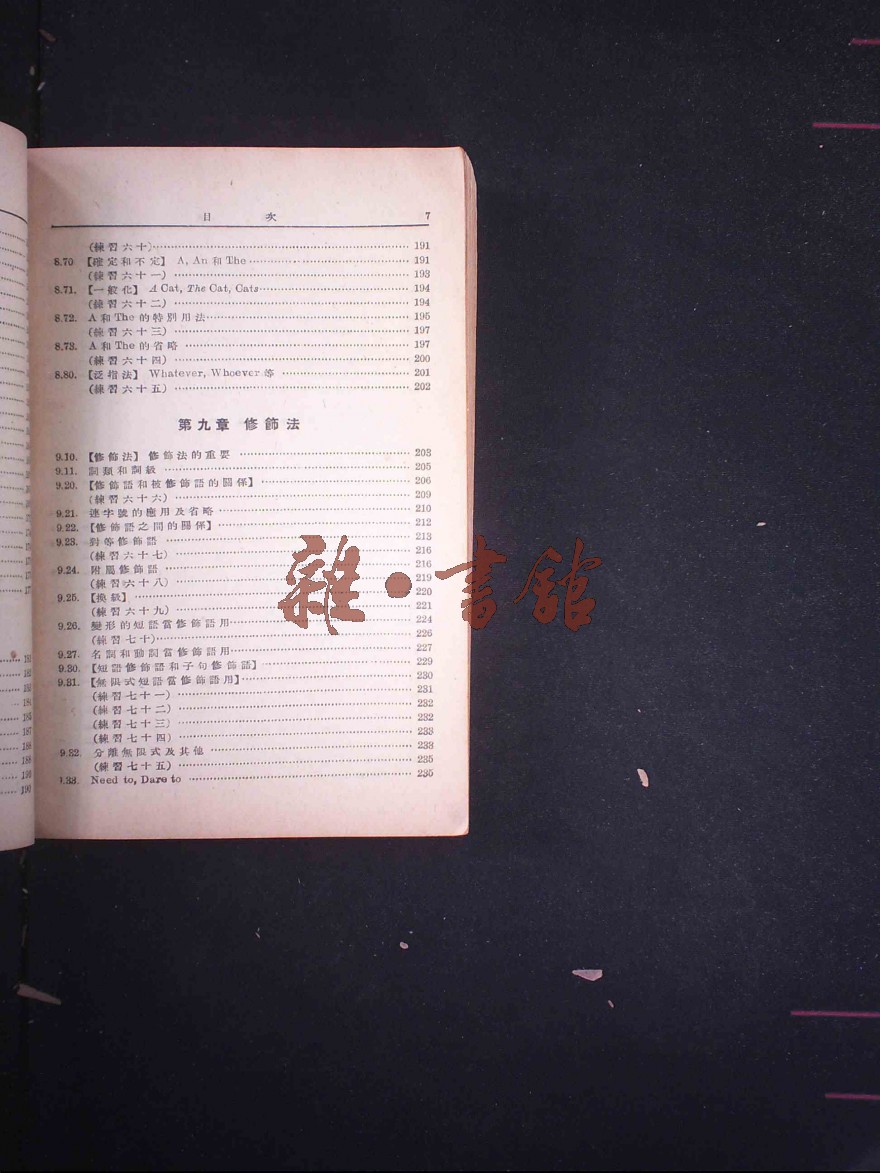 目 次 7
(練習六十) 191
8.70 【確定和不定】 A, An 和 The 191
(練習六十一) 193
8.71. 【一般化】 A Cat, The Cat, Cats 194
(練習六十二) 194
8.72. A 和 The 的特別用法 195
(練習六十三) 197
8.73. A 和 The 的省略 197
(練習六十四) 200
8.80. 【泛指法】 Whatever, Whoever 等 201
(練習六十五) 202
第九章 修飾法
9.10. 【修飾法】 修飾法的重要 203
9.11. 詞類和詞級 205
9.20. 【修飾語和被修飾語的關係】 206
(練習六十六) 209
9.21. 連字號的應用及省略 210
9.22. 【修飾語之間的關係】 212
9.23. 對等修飾語 213
(練習六十七) 216
9.24. 附屬修飾語 216
(練習六十八) 219
9.25. 【換級】 220
(練習六十九) 221
9.26. 變形的短語當修飾語用 224
(練習七十) 226
9.27. 名詞和動詞當修飾語用 227
9.30. 【短語修飾語和子句修飾語】 229
9.31. 【無限式短語當修飾語用】 230
(練習七十一) 231
(練習七十二) 232
(練習七十三) 232
(練習七十四) 233
9.32. 分離無限式及其他 233
(練習七十五) 235
9.33. Need to, Dare to 235
181
182
183
184
185
187
188
188
190
190
雜·書館